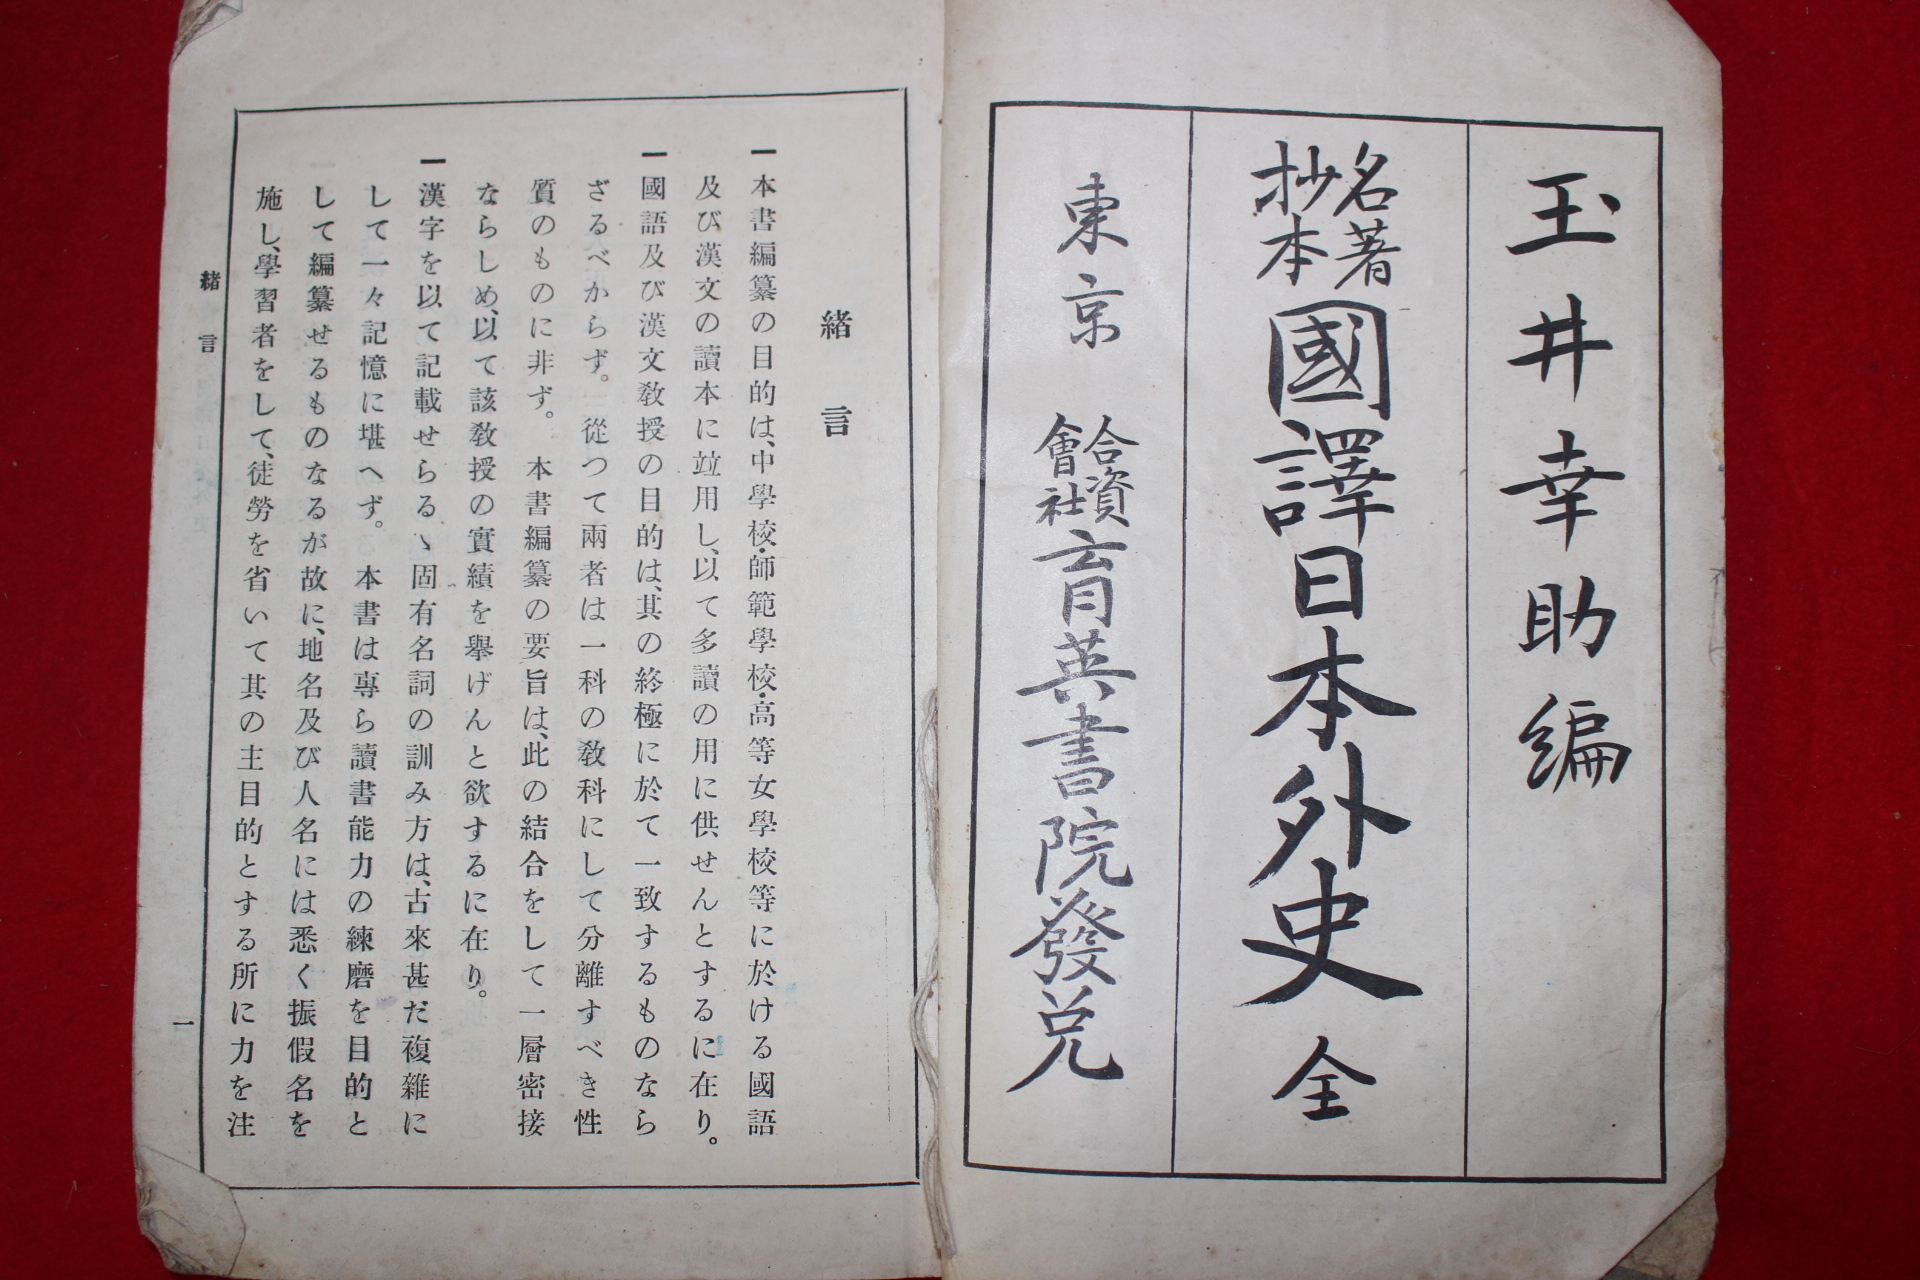 玉井幸助編
名著
抄本
國譯日本外史 全
東京
合資
會社
育英書院發兌
緒言
一本書編纂の目的は、中學校・師範學校・高等女學校等に於ける國語
及び漢文の讀本に竝用し、以て多讀の用に供せんとするに在り。
一國語及び漢文敎授の目的は、其の終極に於て一致するものなら
ざるべからず。從つて兩者は一科の敎科にして分離すべき性
質のものに非ず。本書編纂の要旨は、此の結合をして一層密接
ならしめ、以て該敎授の實績を擧げんと欲するに在り。
一漢字を以て記載せらるゝ固有名詞の訓み方は、古來甚だ複雜に
して一々記憶に堪へず。本書は專ら讀書能力の練磨を目的と
して編纂せるものなるが故に、地名及び人名には悉く振假名を
施し、學習者をして、徒勞を省いて其の主目的とする所に力を注
緒言
一